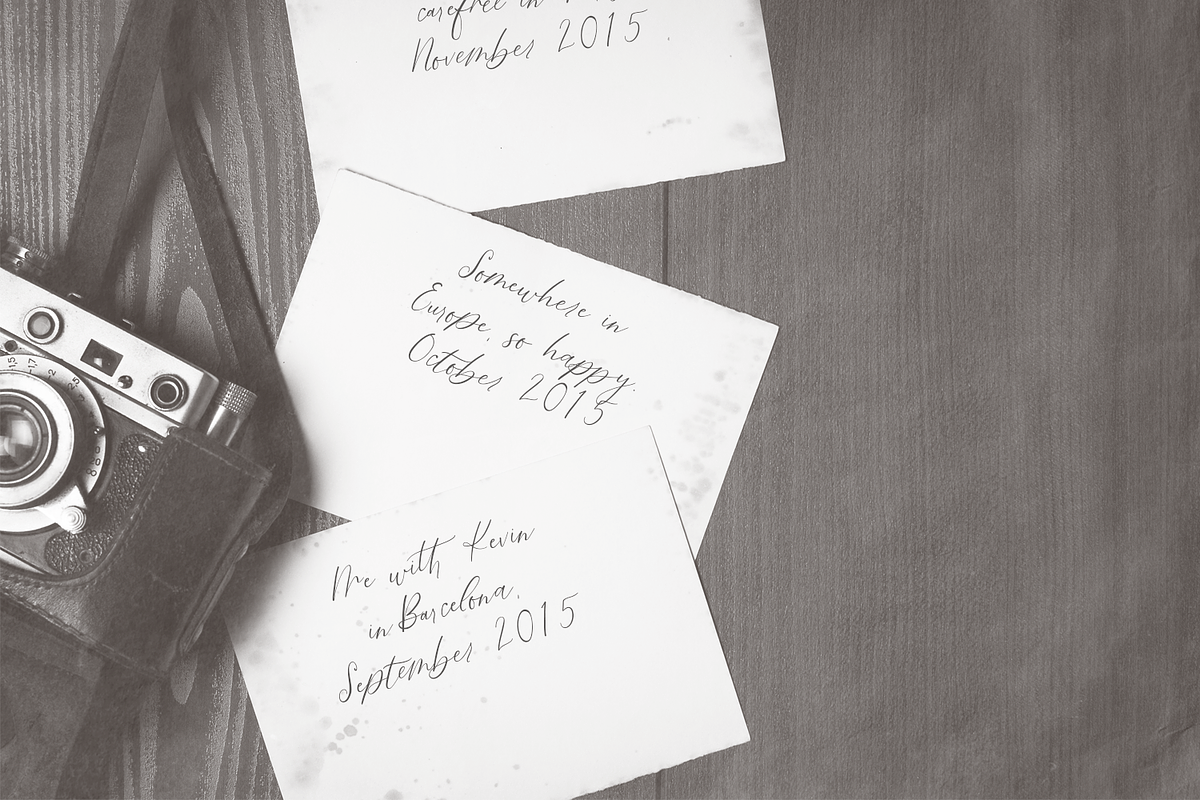 carefree in
November 2015
Somewhere in
Europe, so happy.
October 2015
Me with Kevin
in Barcelona,
September 2015